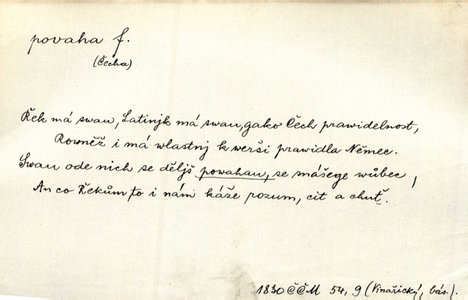 povaha f.
(Čecha)
Řek má swau, Latinjk má swau, gako Čech prawidelnost,
Rowněž i má wlastnj k werši prawidla Němec.
Swau ode nich se děljš powahau, se mášege wůbec,
An co Řekům to i nám káže rozum, cit a chuť.
1830 ČČM 54, 9 (Vinařický, bás.).